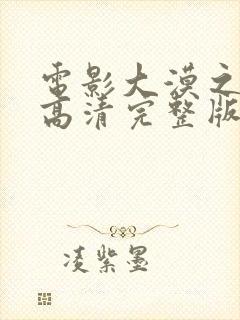 电影大漠之
高清完整版
凌紫墨